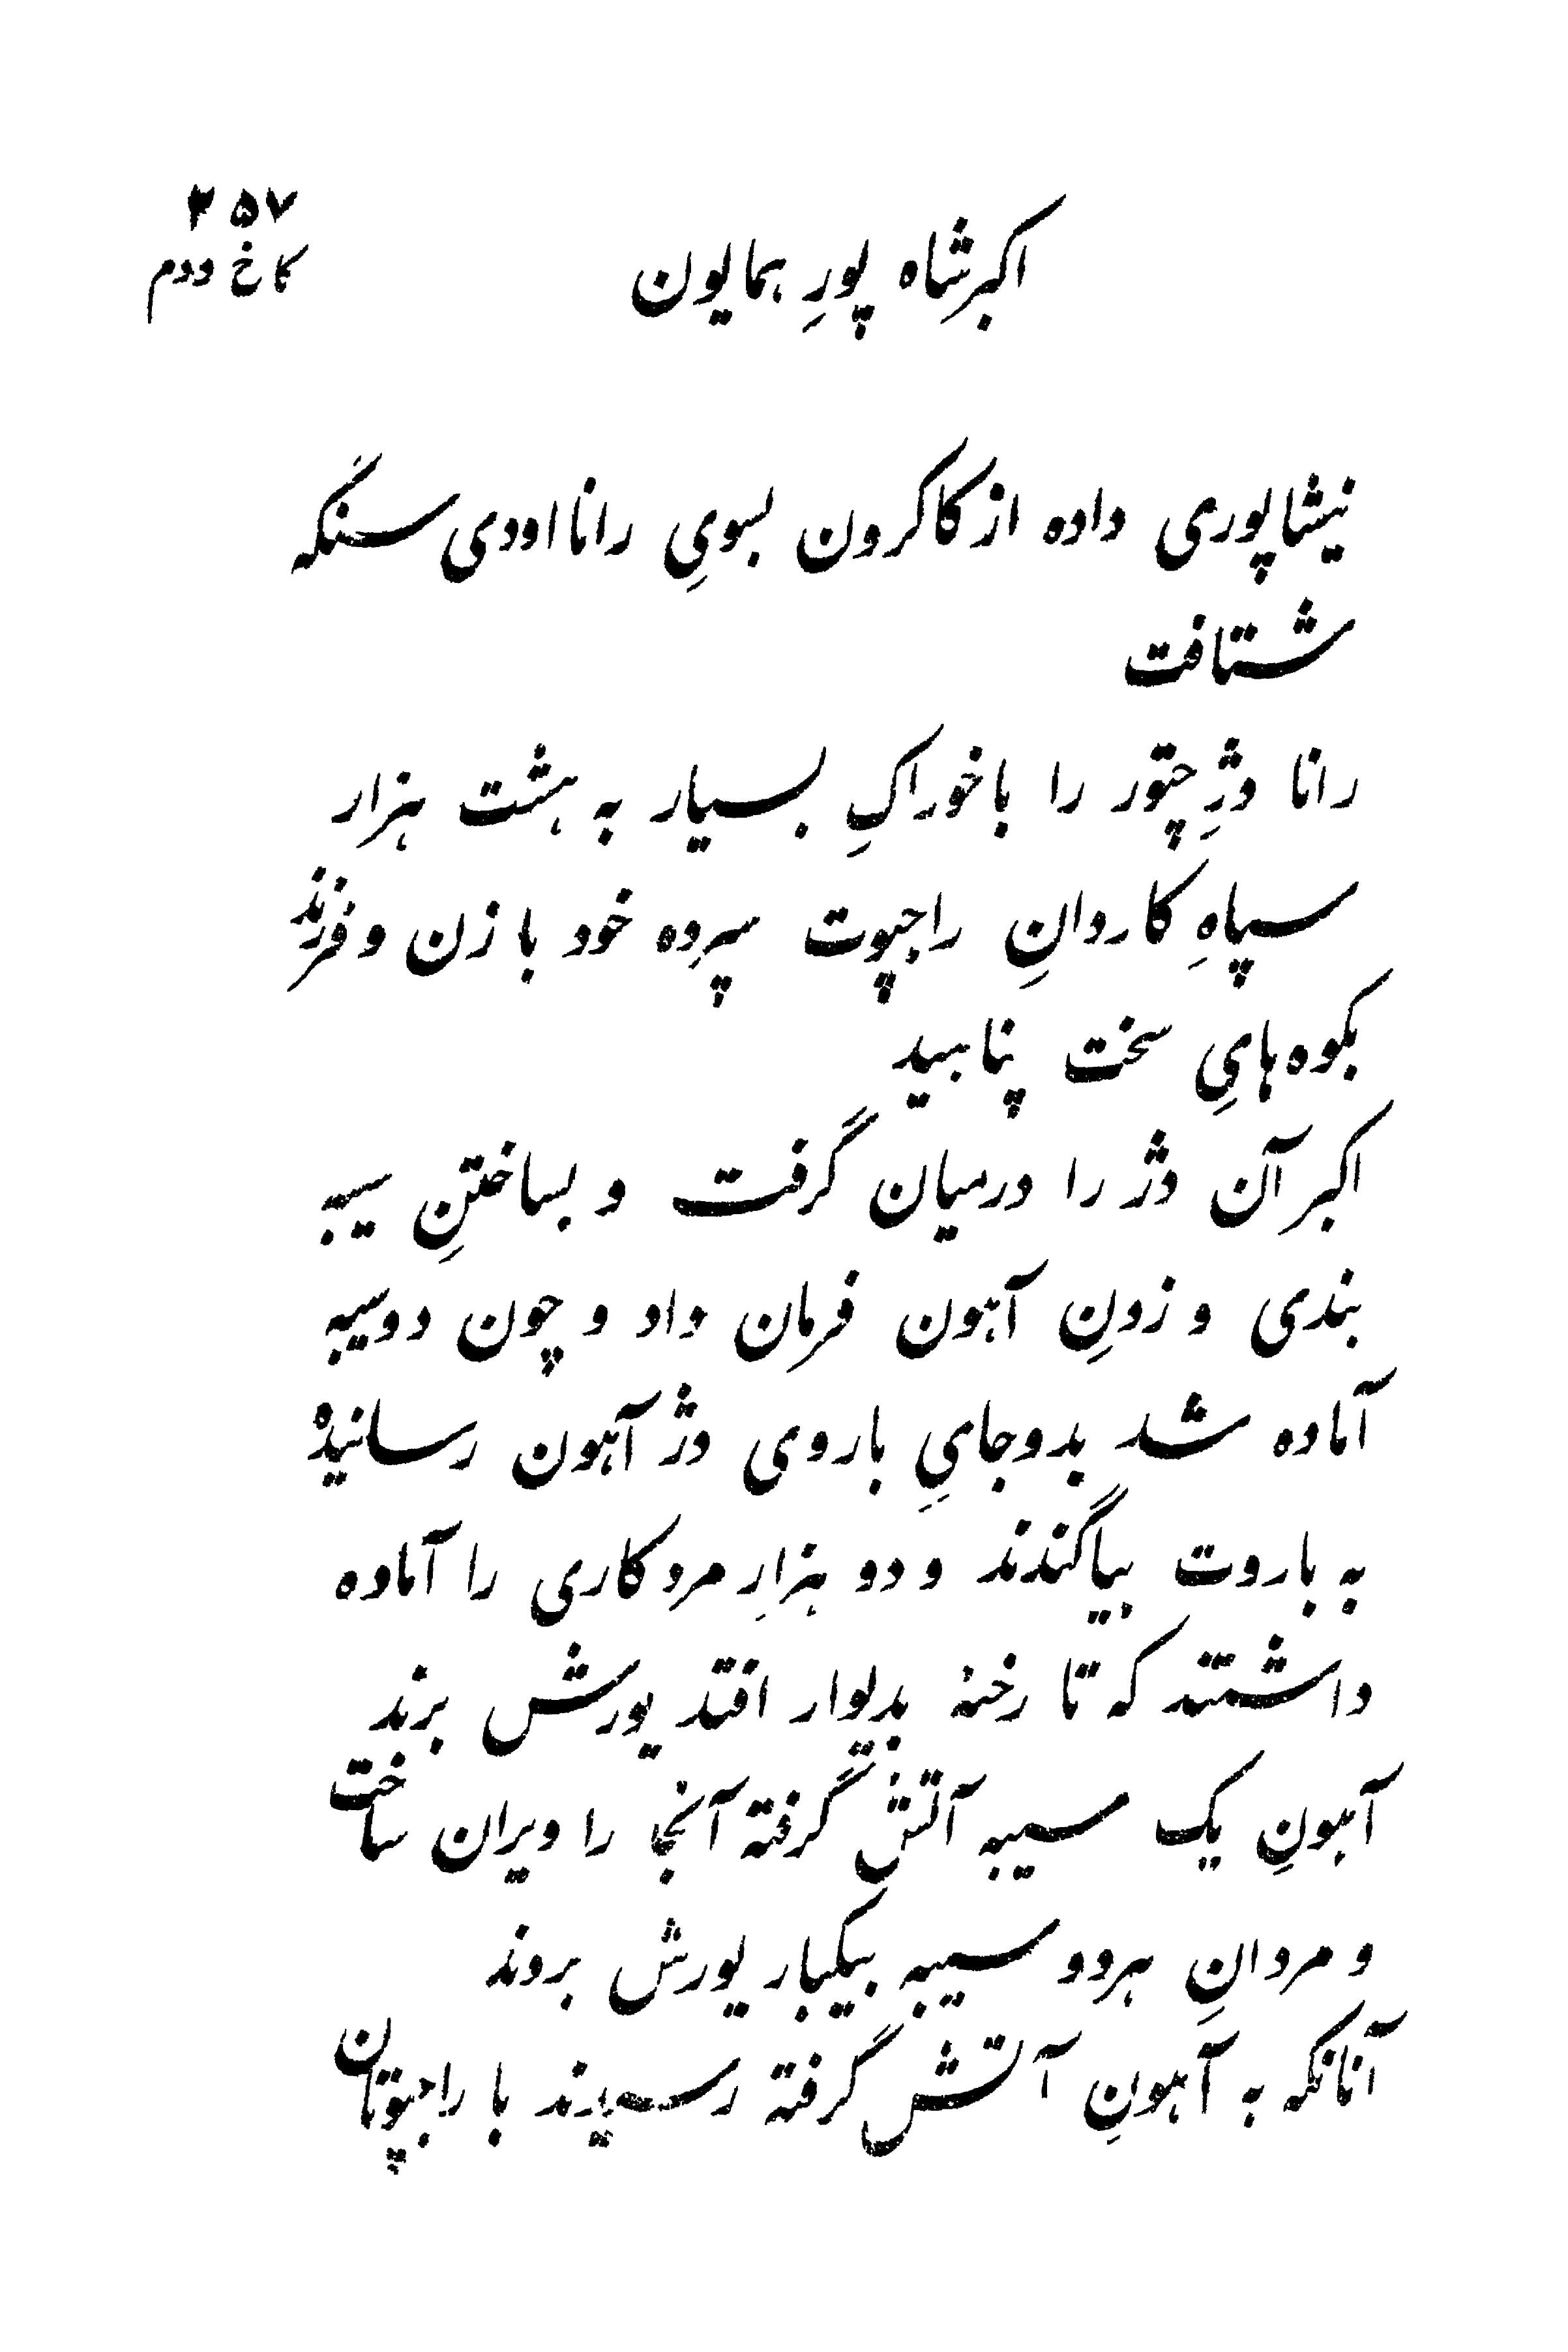 ۲۵۷
کاخ دوم
اکبرشاه پورِ همایون
نیشاپوری داده از کاکرون بسویِ رانا اودی سنگه
شتافت
رانا دژِ چتور را با خوراکِ بسیار به هشت هزار
سپاهِ کاردانِ راجپوت سپرده خود با زن و فرزند
بکوه‌هایِ سخت پناهید
اکبر آن دژ را درمیان گرفت و بساختنِ سیبه
بندی و زدنِ آهون فرمان داد و چون دو سیبه
آماده شد بدو جایِ باروی دژ آهون رسانیده
به باروت بیاگندند و دو هزارِ مرد کاری را آماده
داشتند که تا رخنهٔ بدیوار افتد یورش برند
آهونِ یک سیبه آتش گرفته آنجا را ویران ساخت
و مردانِ هردو سیبه بیکبار یورش بردند
آنانکه به آهونِ آتش گرفته رسیدند با راجپوتان